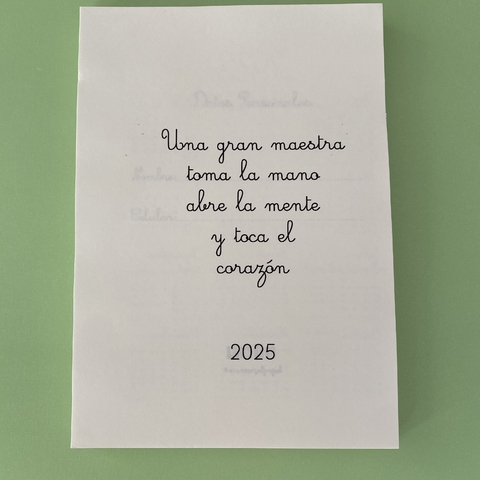 Una gran maestra
toma la mano
abre la mente
y toca el
corazón
2025